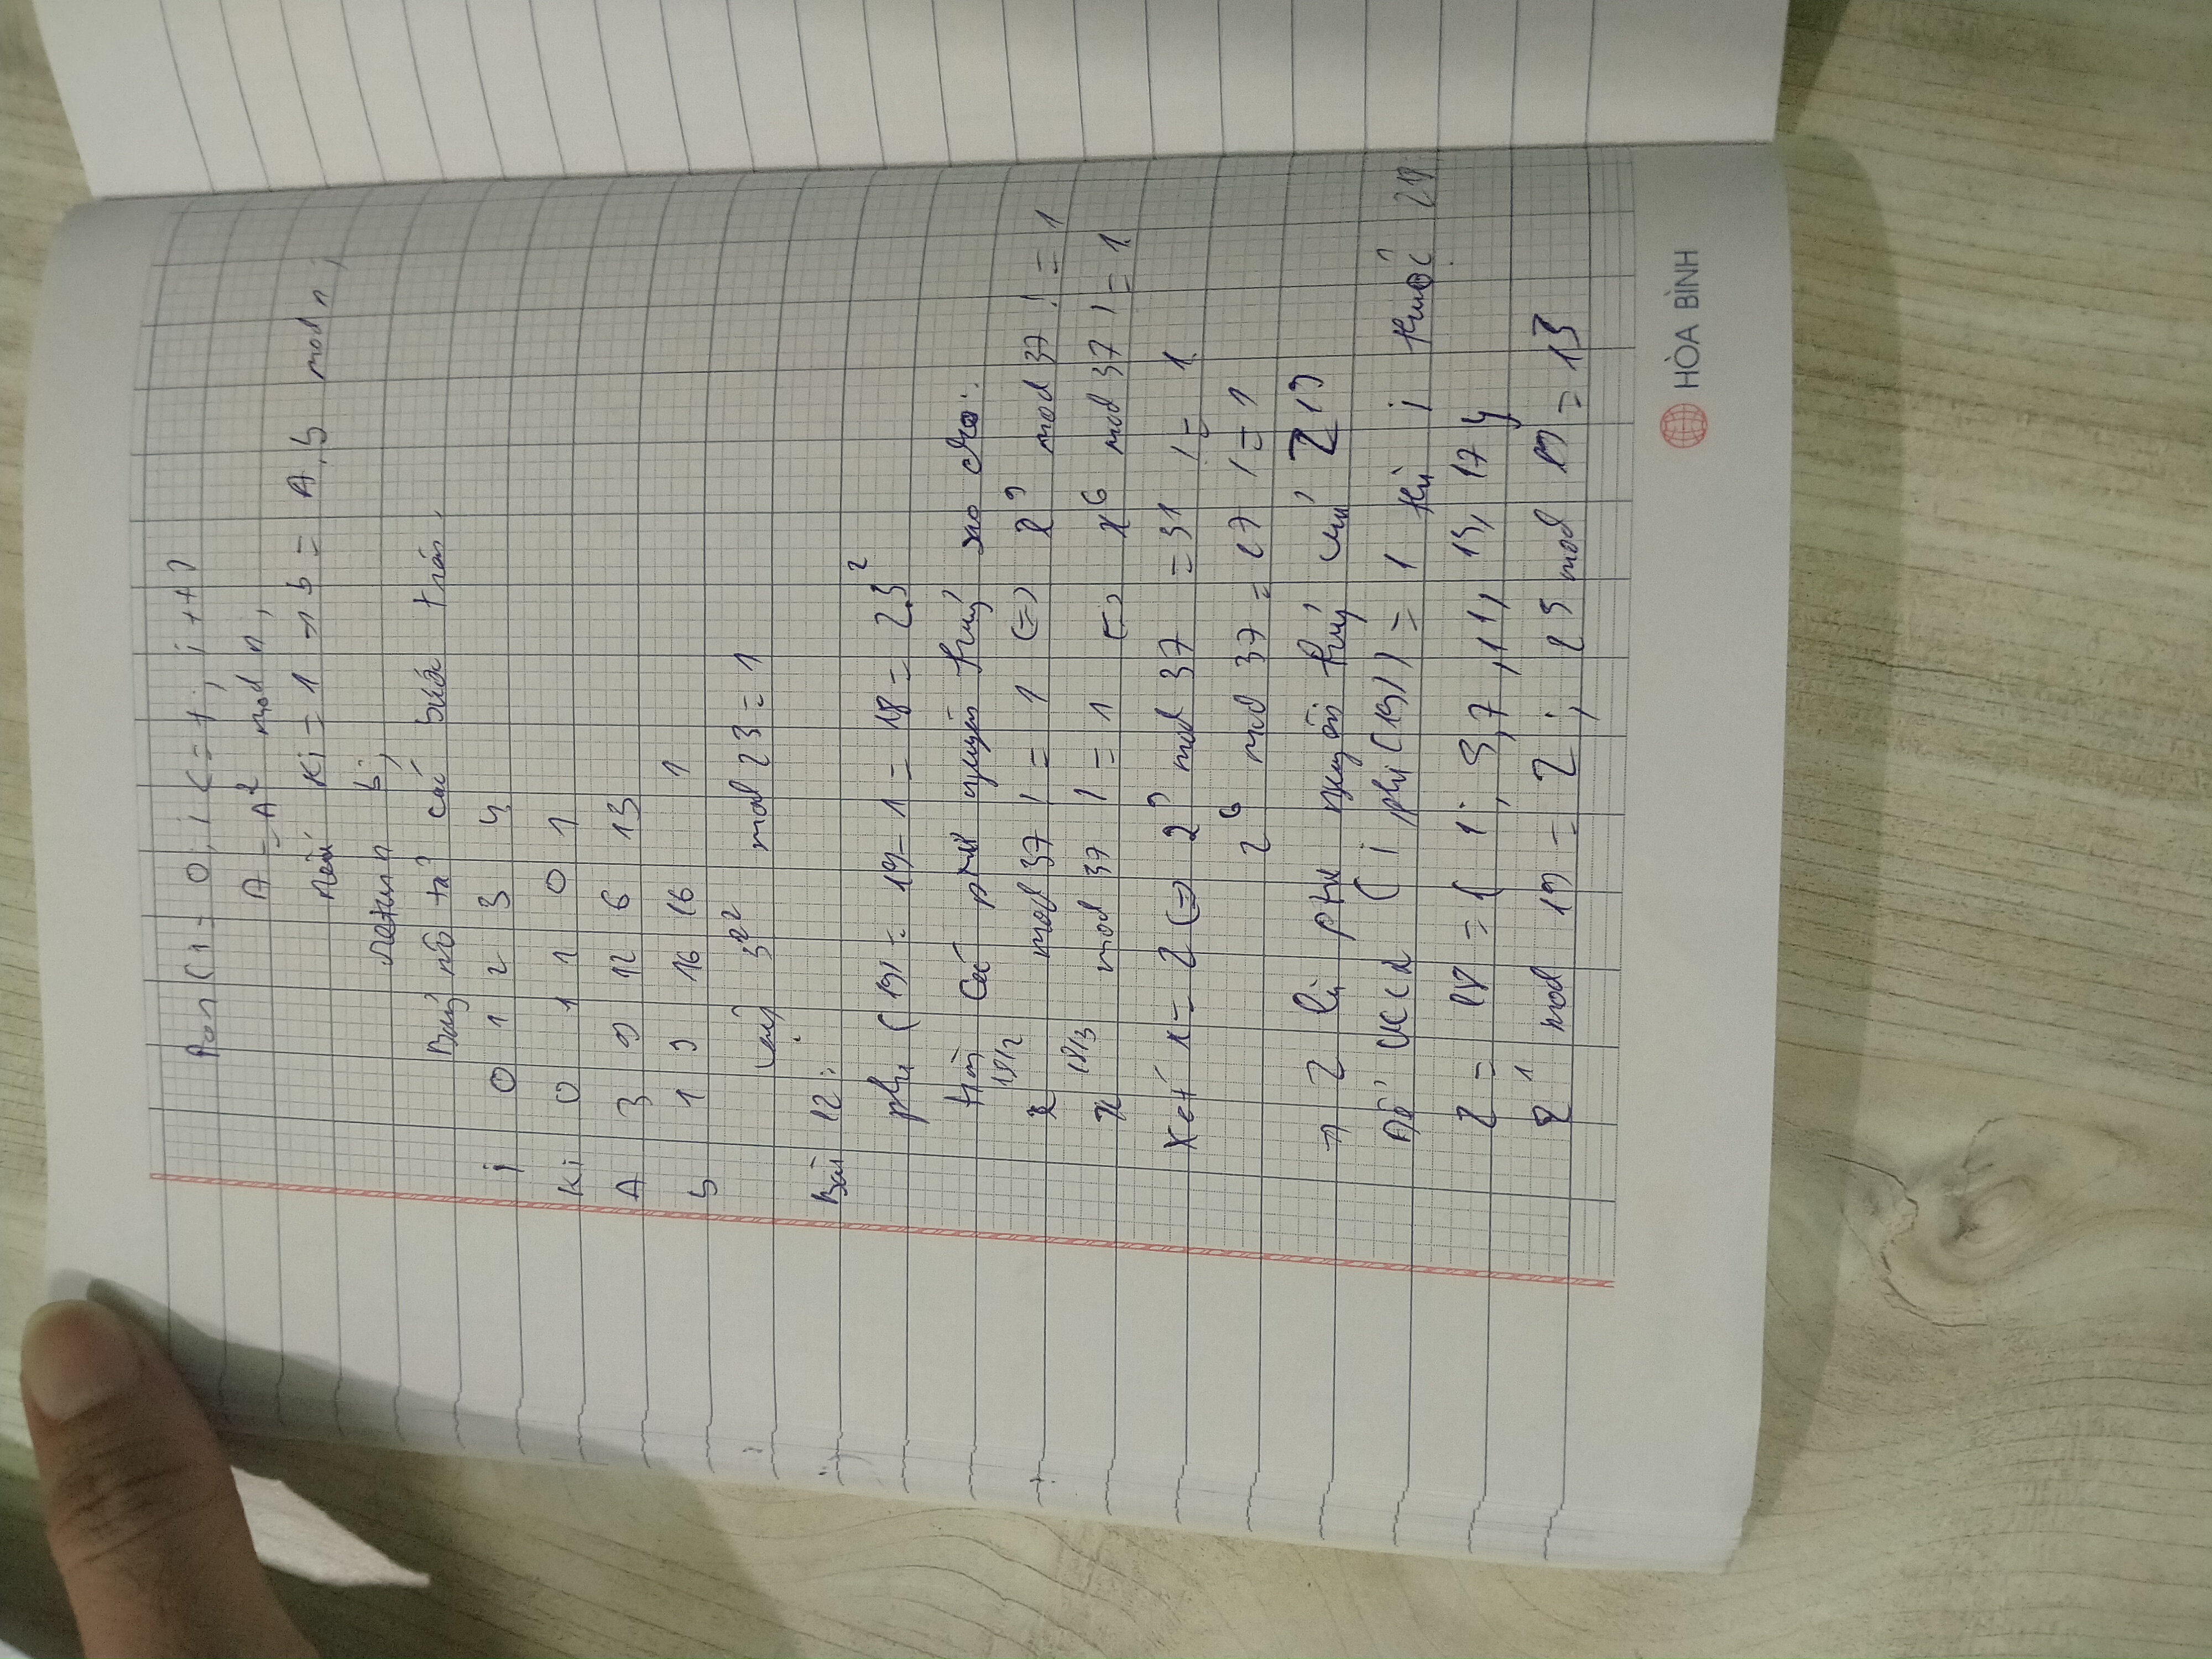 For (i = 0; i <= t; i++)
A = A² mod n;
nếu Ki = 1 → b = A.b mod n;
return b;
Bảng mô tả các bước trên.
i 0 1 2 3 4
Ki 0 1 1 0 1
A 3 9 12 6 13
b 1 9 16 16 1
Vậy 3²² mod 23 = 1
Bài 12:
phi (19) = 19 - 1 = 18 = 2.3²
tìm các ptử nguyên thuỷ sao cho:
x^18/2 mod 37 != 1 <=> x⁹ mod 37 != 1
x^18/3 mod 37 != 1 <=> x⁶ mod 37 != 1
Xét x = 2 <=> 2⁹ mod 37 = 31 != 1
2⁶ mod 37 = 27 != 1
→ 2 là ptử nguyên thuỷ của Z19
Để (i phi(19)) = 1 thì i thuộc
Z = 18 = { 1; 5, 7, 11, 13, 17 }
2¹ mod 19 = 2; 25 mod 19 = 13
HÒA BÌNH